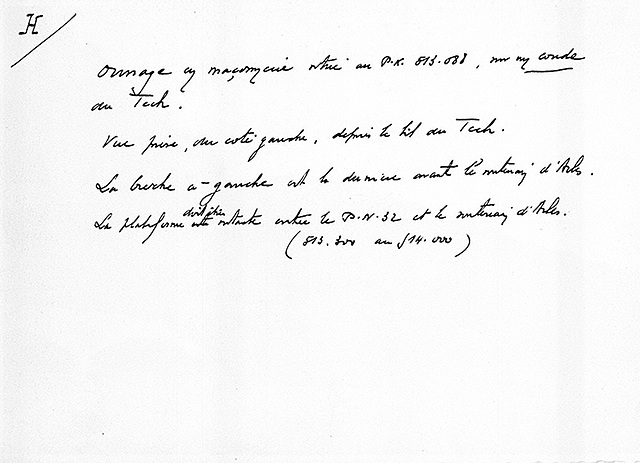 H
Ouvrage en maçonnerie situé au P.K. 813.088, sur un coude
du Tech.
Vue prise, du coté gauche, depuis le lit du Tech.
La brèche à gauche est la dernière avant le souterrain d'Arles.
doit être
La plateforme intacte entre le P.N. 32 et le souterrain d'Arles.
(813.300 au 814.000)